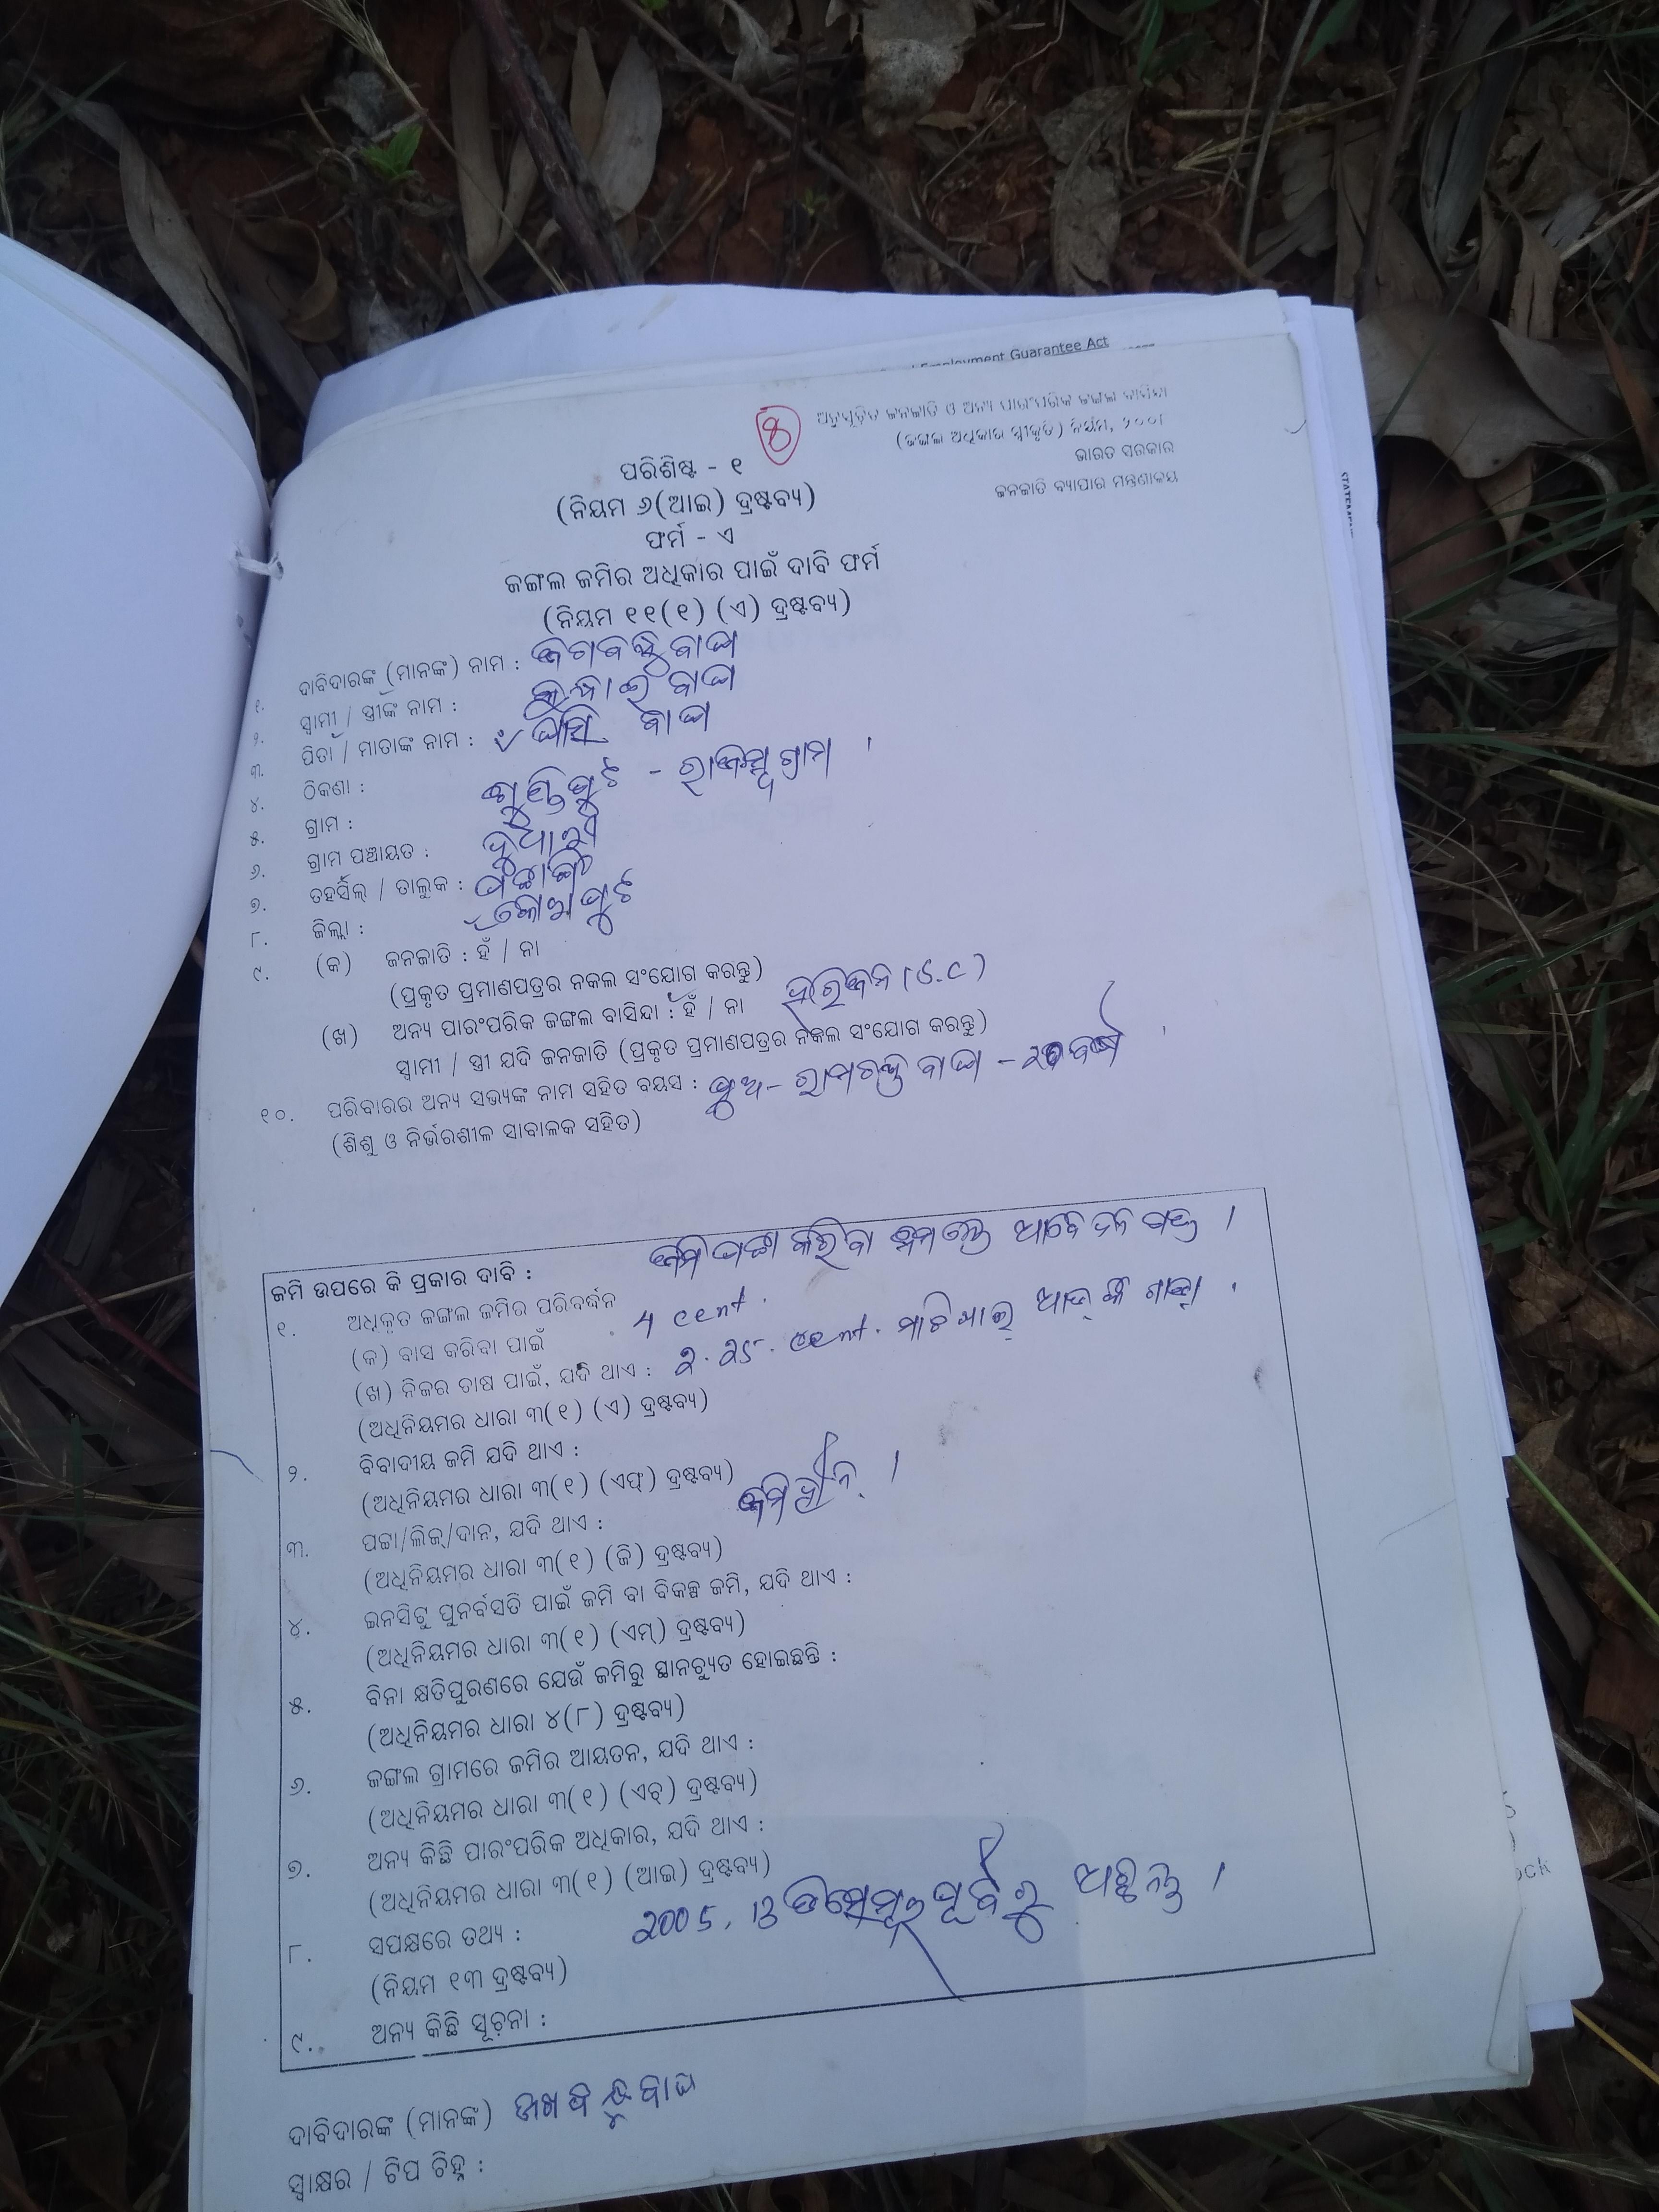 Employment Guarantee Act
ଅନୁସୂଚିତ ଜନଜାତି ଓ ଅନ୍ୟ ପାରଂପରିକ ଜଙ୍ଗଲ ବାସିନ୍ଦା
(ଜଙ୍ଗଲ ଅଧିକାର ସ୍ୱୀକୃତି) ନିୟମ, ୨୦୦୮
ଭାରତ ସରକାର
ଜନଜାତି ବ୍ୟାପାର ମନ୍ତ୍ରଣାଳୟ
ପରିଶିଷ୍ଟ - ୧
(ନିୟମ ୬(ଆଇ) ଦ୍ରଷ୍ଟବ୍ୟ)
ଫର୍ମ - ଏ
ଜଙ୍ଗଲ ଜମିର ଅଧିକାର ପାଇଁ ଦାବି ଫର୍ମ
(ନିୟମ ୧୧(୧) (ଏ) ଦ୍ରଷ୍ଟବ୍ୟ)
୧. ଦାବିଦାରଙ୍କ (ମାନଙ୍କ) ନାମ : ଜଗବନ୍ଧୁ ବାଘ
୨. ସ୍ୱାମୀ / ସ୍ତ୍ରୀଙ୍କ ନାମ : ବାଘ
୩. ପିତା / ମାତାଙ୍କ ନାମ : ଘାସି ବାଘ
୪. ଠିକଣା :
୫. ଗ୍ରାମ : ଗୁଣ୍ଡିପୁଟ - ରାଜସ୍ୱ ଗ୍ରାମ ।
୬. ଗ୍ରାମ ପଞ୍ଚାୟତ : ଦୁଧାରୀ
୭. ତହସିଲ୍ / ତାଲୁକ : ପଟ୍ଟାଙ୍ଗି
୮. ଜିଲ୍ଲା : କୋରାପୁଟ
୯. (କ) ଜନଜାତି : ହଁ / ନା
(ପ୍ରକୃତ ପ୍ରମାଣପତ୍ରର ନକଲ ସଂଯୋଗ କରନ୍ତୁ)
(ଖ) ଅନ୍ୟ ପାରଂପରିକ ଜଙ୍ଗଲ ବାସିନ୍ଦା : ହଁ / ନା ହରିଜନ (S.C)
ସ୍ୱାମୀ / ସ୍ତ୍ରୀ ଯଦି ଜନଜାତି (ପ୍ରକୃତ ପ୍ରମାଣପତ୍ରର ନକଲ ସଂଯୋଗ କରନ୍ତୁ)
୧୦. ପରିବାରର ଅନ୍ୟ ସଭ୍ୟଙ୍କ ନାମ ସହିତ ବୟସ : ପୁଅ - ରାମଚନ୍ଦ୍ର ବାଘ - ବର୍ଷ ।
(ଶିଶୁ ଓ ନିର୍ଭରଶୀଳ ସାବାଳକ ସହିତ)
ଜମି ଉପରେ କି ପ୍ରକାର ଦାବି : ଜମି ପଟ୍ଟା କରିବା
୧. ଅଧିକୃତ ଜଙ୍ଗଲ ଜମିର ପରିବର୍ଦ୍ଧନ
(କ) ବାସ କରିବା ପାଇଁ 4 cent.
(ଖ) ନିଜର ଚାଷ ପାଇଁ, ଯଦି ଥାଏ : 2.25. cent.
(ଅଧିନିୟମର ଧାରା ୩(୧) (ଏ) ଦ୍ରଷ୍ଟବ୍ୟ)
୨. ବିବାଦୀୟ ଜମି ଯଦି ଥାଏ :
(ଅଧିନିୟମର ଧାରା ୩(୧) (ଏଫ୍) ଦ୍ରଷ୍ଟବ୍ୟ) ଜମିହୀନ୍ ।
୩. ପଟ୍ଟା/ଲିଜ୍/ଦାନ, ଯଦି ଥାଏ :
(ଅଧିନିୟମର ଧାରା ୩(୧) (ଜି) ଦ୍ରଷ୍ଟବ୍ୟ)
୪. ଇନସିଟୁ ପୁନର୍ବସତି ପାଇଁ ଜମି ବା ବିକଳ୍ପ ଜମି, ଯଦି ଥାଏ :
(ଅଧିନିୟମର ଧାରା ୩(୧) (ଏମ୍) ଦ୍ରଷ୍ଟବ୍ୟ)
୫. ବିନା କ୍ଷତିପୁରଣରେ ଯେଉଁ ଜମିରୁ ସ୍ଥାନଚ୍ୟୁତ ହୋଇଛନ୍ତି :
(ଅଧିନିୟମର ଧାରା ୪(୮) ଦ୍ରଷ୍ଟବ୍ୟ)
୬. ଜଙ୍ଗଲ ଗ୍ରାମରେ ଜମିର ଆୟତନ, ଯଦି ଥାଏ :
(ଅଧିନିୟମର ଧାରା ୩(୧) (ଏଚ୍) ଦ୍ରଷ୍ଟବ୍ୟ)
୭. ଅନ୍ୟ କିଛି ପାରଂପରିକ ଅଧିକାର, ଯଦି ଥାଏ :
(ଅଧିନିୟମର ଧାରା ୩(୧) (ଆଇ) ଦ୍ରଷ୍ଟବ୍ୟ)
୮. ସପକ୍ଷରେ ତଥ୍ୟ : 2005, 13 ଡିସେମ୍ବର ପୂର୍ବରୁ ଅଛନ୍ତି ।
(ନିୟମ ୧୩ ଦ୍ରଷ୍ଟବ୍ୟ)
୯. ଅନ୍ୟ କିଛି ସୂଚନା :
ଦାବିଦାରଙ୍କ (ମାନଙ୍କ) ଜଗବନ୍ଧୁ ବାଘ
ସ୍ୱାକ୍ଷର / ଟିପ ଚିହ୍ନ :